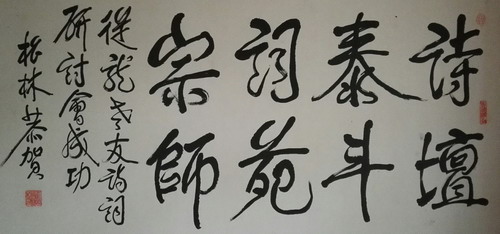 詩壇
泰斗
詞苑
宗師
從龍老友詩詞
研討會成功
根林恭賀